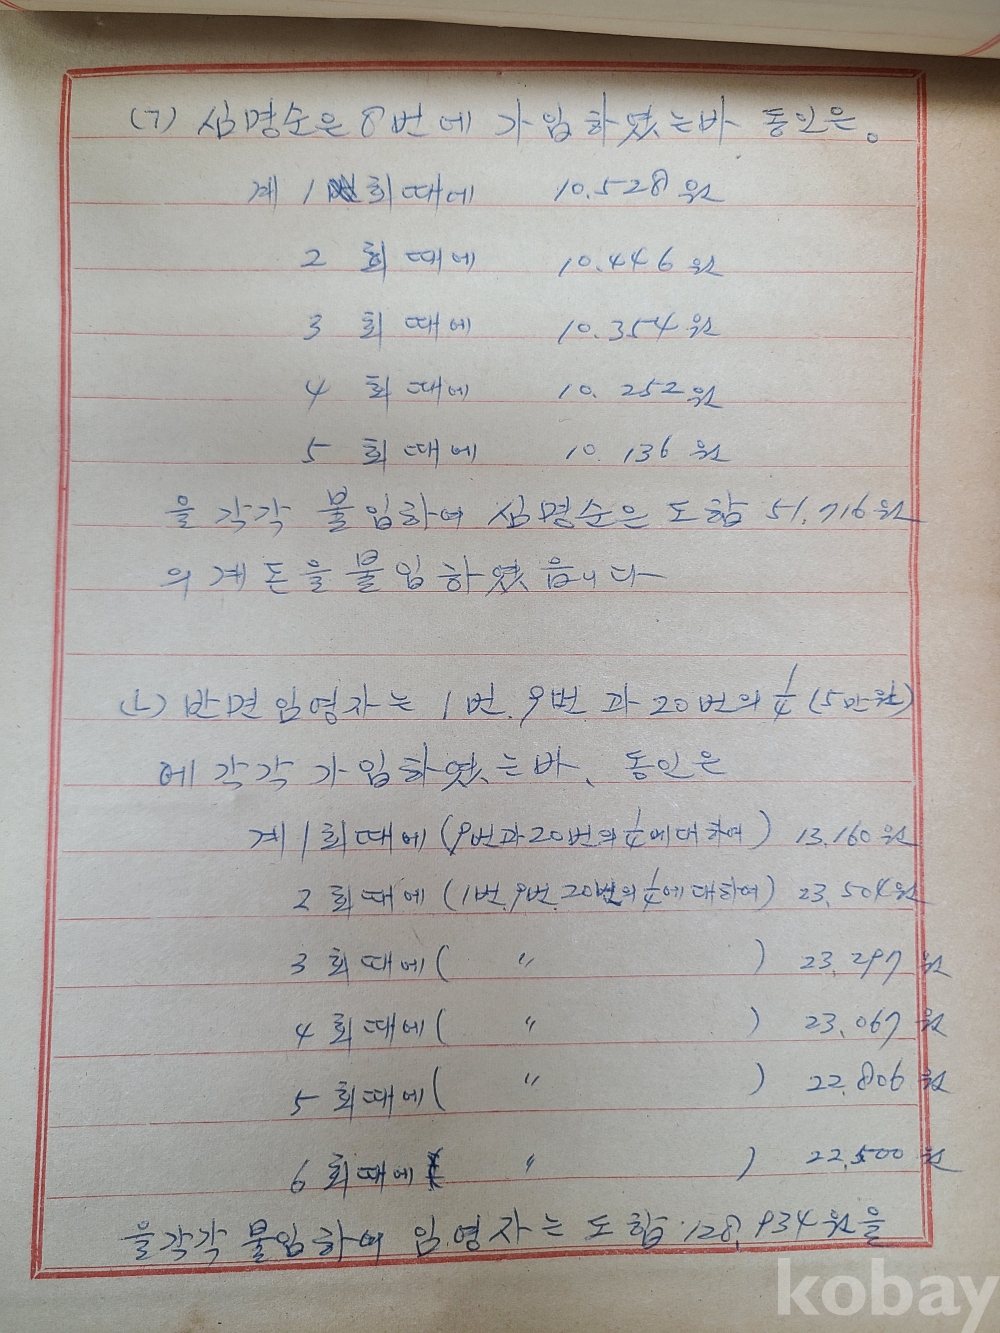 (ㄱ) 심명순은 8번에 가입하였는바 동인은.
계 1회때에 10.528원
2 회때에 10.446원
3 회때에 10.354원
4 회때에 10.252원
5 회때에 10.136원
을 각각 불입하여 심명순은 도합 51,716원
의 계돈을 불입하였읍니다
(ㄴ) 반면 임영자는 1번. 9번과 20번의 1/4 (5만원)
에 각각 가입하였는바, 동인은
계 1회때에 (9번과 20번의 1/4에 대하여) 13,160원
2 회때에 (1번.9번.20번의 1/4에 대하여) 23,504원
3 회때에 ( 〃 ) 23,297원
4 회때에 ( 〃 ) 23,067원
5 회때에 ( 〃 ) 22,806원
6 회때에 ( 〃 ) 22,500원
을 각각 불입하여 임영자는 도합 128,934원을
kobay